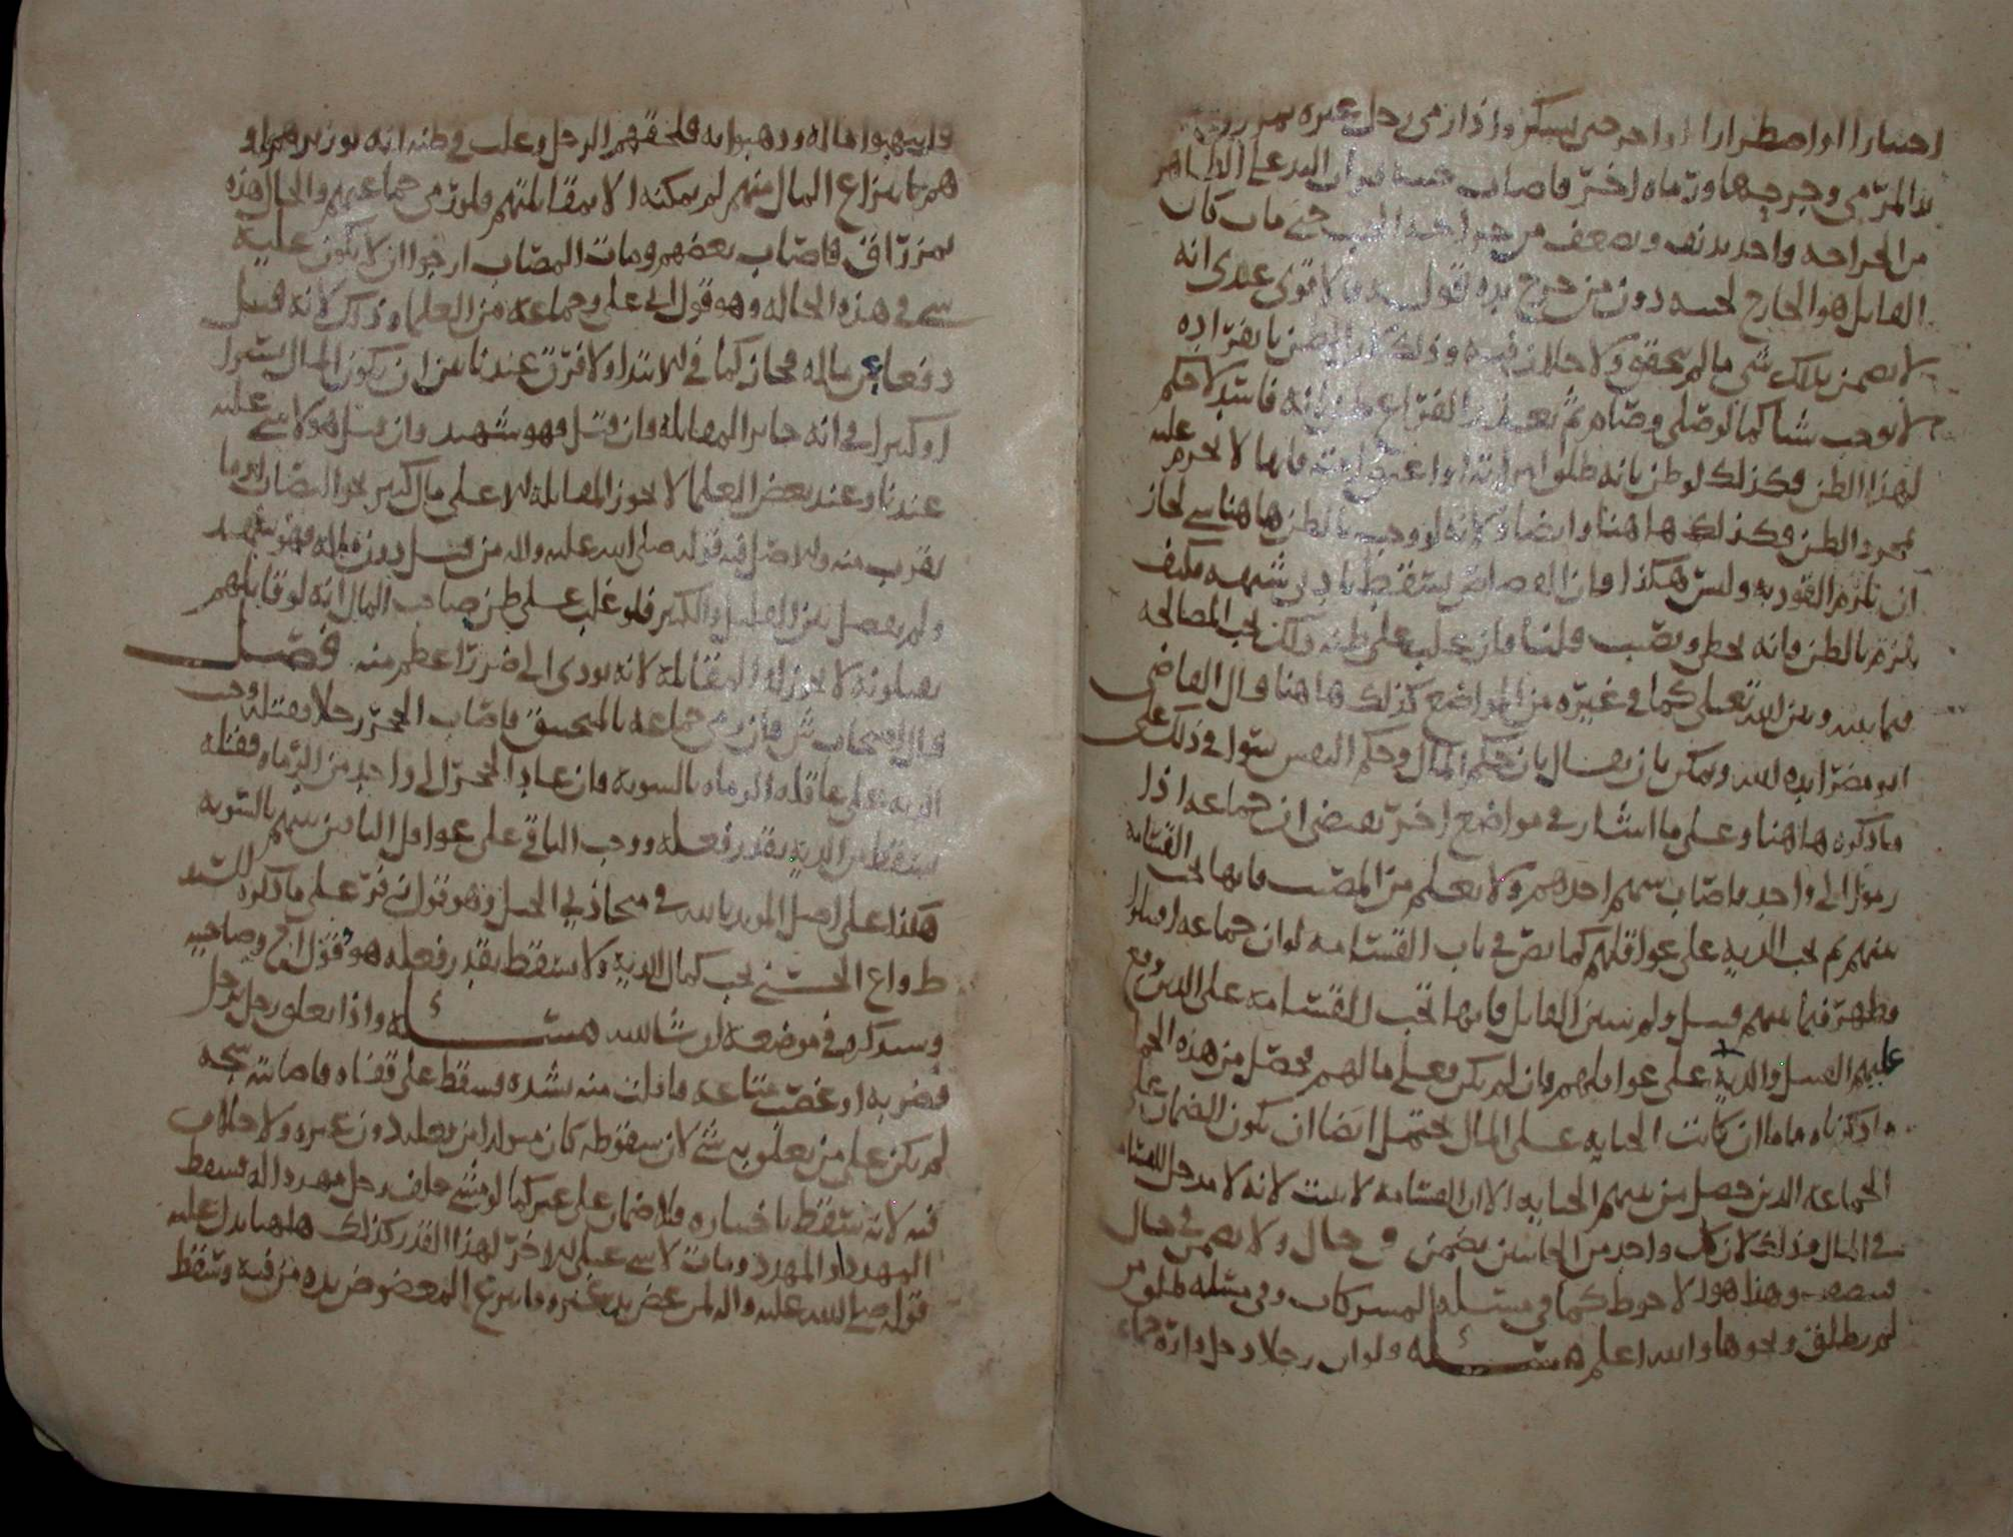 احسارا او اصطرارا او احر حى سكر واذا رمى رجل غيره
بدا المرمى وجرحها ورماه اخر فاصاب جنبه الطاهر
من الجراحه واحد بدنف ويصعف من جراحه الجنب حتى مات كان
القاىل هو الجارح لجنبه دون من جرح يده اقول الاقوى عندى انه
لا يضمن بذلك شى ما لم يحقق ولا خلاف فيه وذلك لان الظن بانفراده
لا يوجب شيا كما لو صلى وصام ثم بعد الفراغ ظن انه فاسد لا حكم
لهذا الظن فكذلك لو ظن بانه طلق امراته او اعتق امته فانها لا تحرم عليه
بمجرد الظن فكذلك هاهنا وايضا ولانه لو وجب بالظن هاهنا شى لجاز
ان يلزم القود به وليس هكذا فان القصاص يسقط بادنى شبهه فكيف
يلزم بالظن فانه يخطى ويصيب قلنا فان غلب على ظنه ذلك يجب المصالحه
فيما بينه وبين الله تعالى كما فى غيره من المواضع كذلك هاهنا قال القاضى
ابو مضر ايده الله ويمكن بان يقال بان حكم المال وحكم النفس سوا فى ذلك على
ما ذكره هاهنا وعلى ما اشار فى مواضع اخر يقضى ان جماعه اذا
رموا الى واحد فاصاب سهم احدهم ولا يعلم من المصيب فانها تجب القسامه
بينهم ثم تجب الديه على عواقلهم كما نص فى باب القسامه لو ان جماعه اقتتلوا
فظهر فيما بينهم قتيل ولم يتبين القاتل فانها تجب القسامه على الذين وقع
عليهم القتل والديه على عواقلهم فان لم يكن فعلى مالهم فحصل من هذه الجمله
ما ذكرناه فاما ان كانت الجنايه على المال يحتمل ايضا ان يكون الضمان على
الجماعه الذين حصل من بينهم الجنايه الا ان القسامه لا يثبت لانه لا مدخل للقسامه
فى المال وذلك لان كل واحد من الجانبين يضمن فى حال ولا يضمن فى حال
وهذا هو الاحوط كما فى مسئله المشركات وفى مسئله
لم يطلق ونحوها والله اعلم مسئله ولو ان رجلا دخل داره جماعه
فانتهبوا ماله وذهبوا به فلحقهم الرجل وغلب فى ظنه انه لو زبرهم او
هم بانتزاع المال منهم لم يمكنه الا بمقاتلتهم فلو رمى جماعتهم والحال هذه
بمزراق فاصاب بعضهم ومات المصاب ارجوا ان لا يكون عليه
شى فى هذه الحاله وهو قول ابى على وجماعه من العلما وذلك لانه قتل
دفعا عن ماله فجاز كما فى الابتدا ولا فرق عندنا بين ان يكون المال يسيرا
او كبيرا فى انه جايز المقاتله فان قتل فهو شهيد وان قتل هو لا شى عليه
عندنا وعند بعض العلما لا يجوز المقاتله الا على مال كثير نحو النصاب او ما
يقرب منه والاصل فيه قوله صلى الله عليه واله من قتل دون ماله فهو شهيد
ولم يفصل بين القليل والكثير فلو غلب على ظن صاحب المال انه لو قاتلهم
يقتلونه لا يجوز له المقاتله لانه يودى الى ضرر اعظم منه فصل
قال اصحاب ش فان رمى جماعه بالمنجنيق فاصاب الحجر رجلا بقتله وجب
الديه على عاقله الرماه بالسويه فان عاد الحجر الى واحد من الرماه فقتله
يسقط من الديه بقدر فعله ووجب الباقى على عواقل الباقين بينهم بالسويه
هكذا على اصل المويد بالله فى متجاذبى الحبل وهو قول زفر على ما ذكره السيد
ط واع الحسنى تجب كمال الديه ولا يسقط بقدر فعله هو قول ابى ح وصاحبيه
وسنذكره فى موضعه ان شا الله مسئله واذا تعلق رجل برجل
فضربه او غصب متاعه فافلت منه بشده فسقط على قفاه فاصابته شجه
لم يكن على من تعلق به شى لان سقوطه كان متولدا من فعله دون غيره ولا خلاف
فيه لانه سقط باختياره فلا ضمان على غيره كما لو مشى خلف رجل مهددا له فسقط
المهدد او المهدد ومات لا شى على الاخر لهذا القدر كذلك هاهنا يدل عليه
قوله صلى الله عليه واله لمن عض يد غيره فانتزع المعضوض يده من فيه وسقط